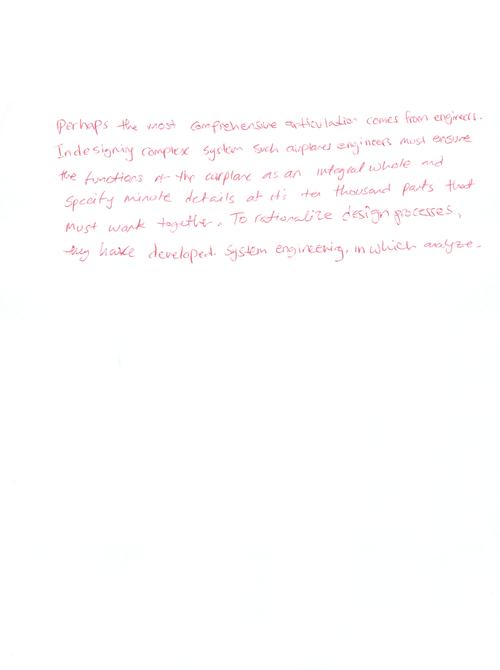 Perhaps the most comprehensive articulation comes from engineers.
In designing complex system such airplanes engineers must ensure
the functions of the airplane as an integral whole and
Specify minute details at it's ten thousand parts that
must work together. To rationalize design processes,
they have developed. System engineering, in which analyze.